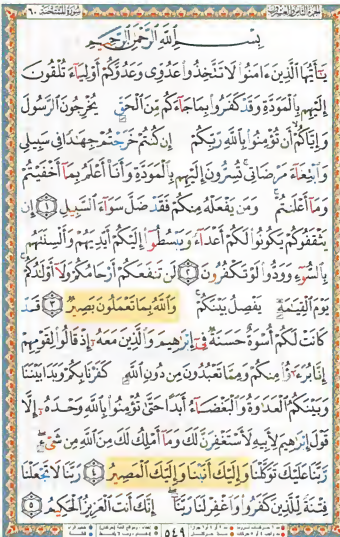 بِسْمِ اللَّهِ الرَّحْمَٰنِ الرَّحِيمِ
يَا أَيُّهَا الَّذِينَ ءَامَنُوا لَا تَتَّخِذُوا عَدُوِّي وَعَدُوَّكُمْ أَوْلِيَاءَ تُلْقُونَ
إِلَيْهِم بِالْمَوَدَّةِ وَقَدْ كَفَرُوا بِمَا جَاءَكُم مِّنَ الْحَقِّ يُخْرِجُونَ الرَّسُولَ
وَإِيَّاكُمْ أَن تُؤْمِنُوا بِاللَّهِ رَبِّكُمْ إِن كُنتُمْ خَرَجْتُمْ جِهَادًا فِي سَبِيلِي
وَابْتِغَاءَ مَرْضَاتِي تُسِرُّونَ إِلَيْهِم بِالْمَوَدَّةِ وَأَنَا أَعْلَمُ بِمَا أَخْفَيْتُمْ
وَمَا أَعْلَنتُمْ وَمَن يَفْعَلْهُ مِنكُمْ فَقَدْ ضَلَّ سَوَاءَ السَّبِيلِ ١ إِن
يَثْقَفُوكُمْ يَكُونُوا لَكُمْ أَعْدَاءً وَيَبْسُطُوا إِلَيْكُمْ أَيْدِيَهُمْ وَأَلْسِنَتَهُم
بِالسُّوءِ وَوَدُّوا لَوْ تَكْفُرُونَ ٢ لَن تَنفَعَكُمْ أَرْحَامُكُمْ وَلَا أَوْلَادُكُمْ
يَوْمَ الْقِيَامَةِ يَفْصِلُ بَيْنَكُمْ وَاللَّهُ بِمَا تَعْمَلُونَ بَصِيرٌ ٣ قَدْ
كَانَتْ لَكُمْ أُسْوَةٌ حَسَنَةٌ فِي إِبْرَاهِيمَ وَالَّذِينَ مَعَهُ إِذْ قَالُوا لِقَوْمِهِمْ
إِنَّا بُرَءَاؤُا مِنكُمْ وَمِمَّا تَعْبُدُونَ مِن دُونِ اللَّهِ كَفَرْنَا بِكُمْ وَبَدَا بَيْنَنَا
وَبَيْنَكُمُ الْعَدَاوَةُ وَالْبَغْضَاءُ أَبَدًا حَتَّىٰ تُؤْمِنُوا بِاللَّهِ وَحْدَهُ إِلَّا
قَوْلَ إِبْرَاهِيمَ لِأَبِيهِ لَأَسْتَغْفِرَنَّ لَكَ وَمَا أَمْلِكُ لَكَ مِنَ اللَّهِ مِن شَيْءٍ
رَّبَّنَا عَلَيْكَ تَوَكَّلْنَا وَإِلَيْكَ أَنَبْنَا وَإِلَيْكَ الْمَصِيرُ ٤ رَبَّنَا لَا تَجْعَلْنَا
فِتْنَةً لِّلَّذِينَ كَفَرُوا وَاغْفِرْ لَنَا رَبَّنَا إِنَّكَ أَنتَ الْعَزِيزُ الْحَكِيمُ ٥
٥٤٩